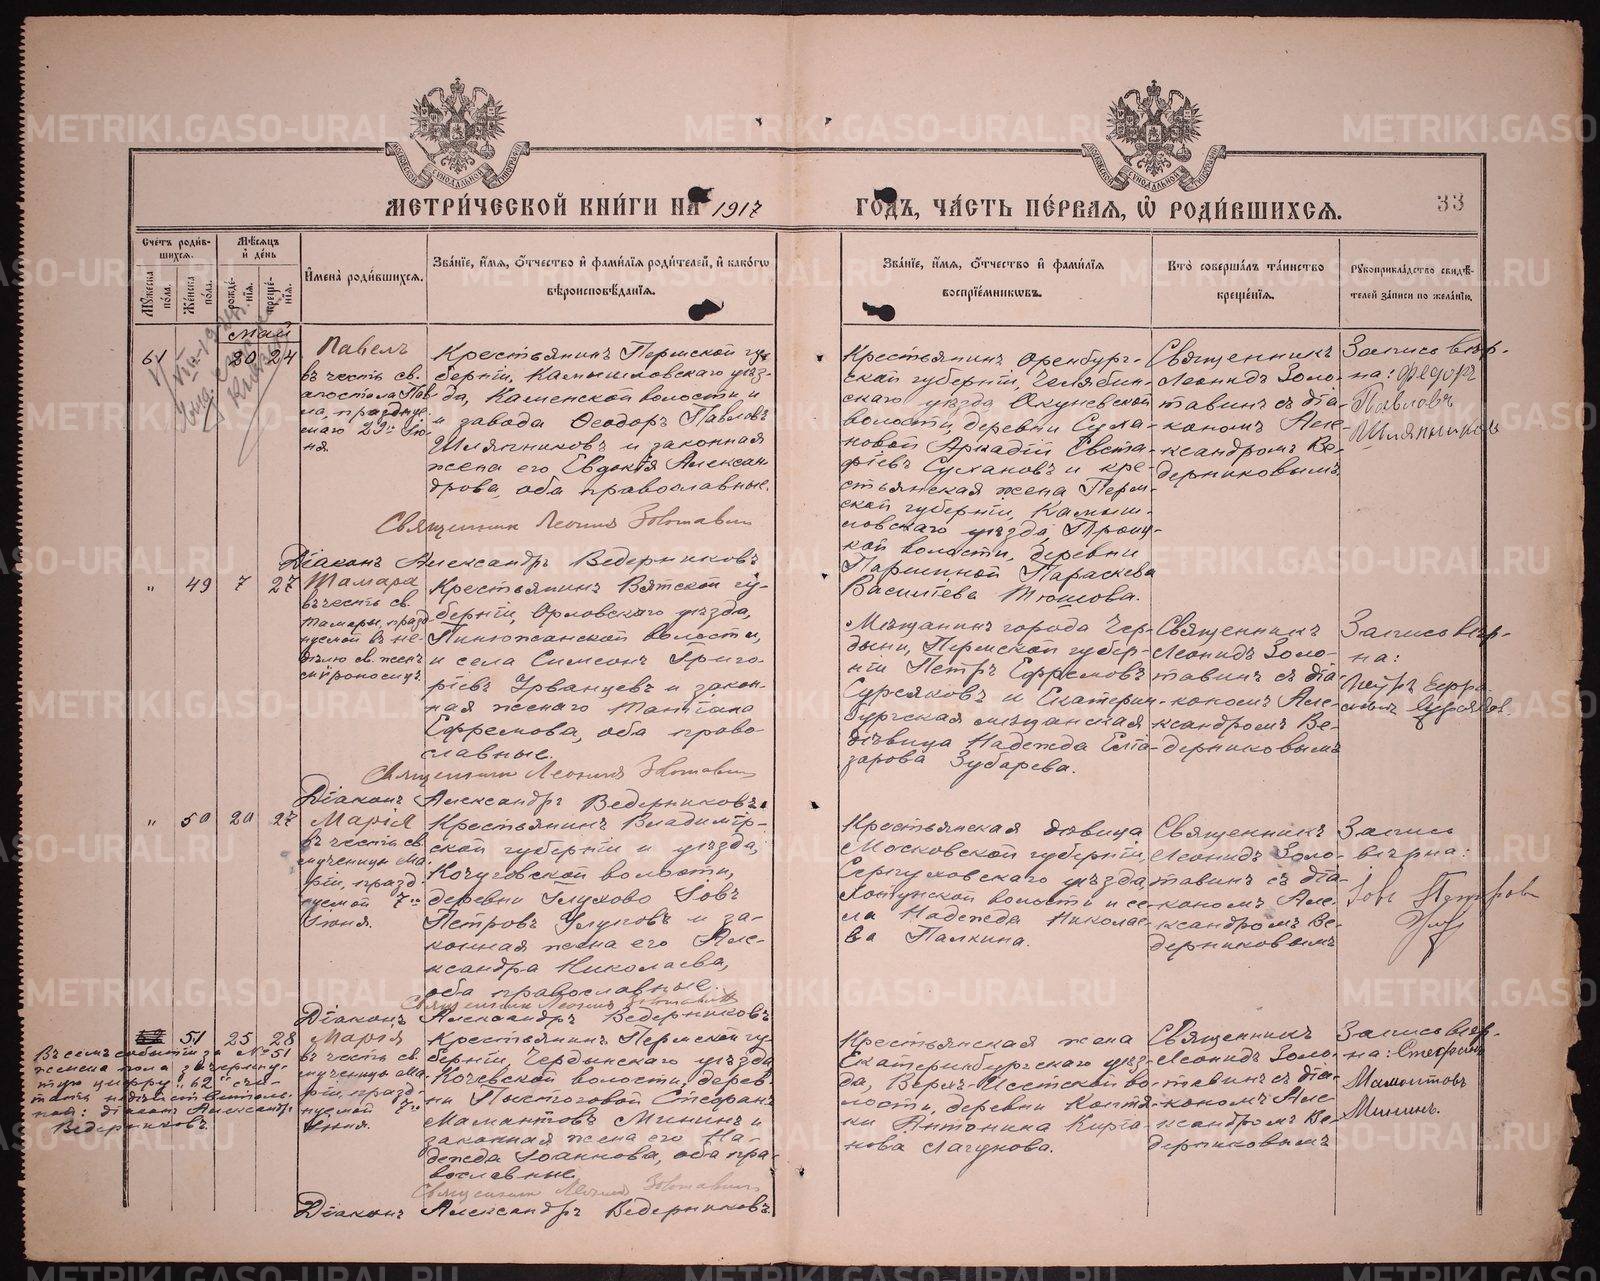 МЕТРИЧЕСКОЙ КНИГИ НА 1917
ГОДЪ, ЧАСТЬ ПЕРВАЯ, Ѡ РОДИВШИХСЯ.
33
Счетъ родив-
шихся.
Мѣсяцъ
и день
Имена родившихся.
Званіе, имя, отчество и фамилія родителей, и какогѡ
вѣроисповѣданія.
Званіе, имя, отчество и фамилія
воспріемниковъ.
Кто совершалъ таинство
крещенія.
Рукоприкладство свидѣ-
телей записи по желанію.
Мужеска
пола.
Женска
пола.
рожде-
нія.
креще-
нія.
Май
61
20 24
Павелъ
въ честь св.
апостола Пав-
ла, праздну-
емаго 29го Iю-
ня.
Крестьянинъ Пермской гу-
берніи, Камышловскаго уѣз-
да, Каменской волости, и
завода Ѳеодоръ Павловъ
Шляпниковъ и законная
жена его Евдокія Алексан-
дрова, оба православные.
Священникъ Леонидъ Золотавинъ
Діаконъ Александръ Ведерниковъ
Крестьянинъ Оренбург-
ской губерніи, Челябин-
скаго уѣзда Окуневской
волости, деревни Сула-
новой Аркадій Евста-
фіевъ Сулановъ и кре-
стьянская жена Перм-
ской губерніи, Камыш-
ловскаго уѣзда,
кой волости, деревни
Паршиной Параскева
Василіева Тюшова.
Священникъ
Леонидъ Золо-
тавинъ съ діа-
кономъ Але-
ксандромъ Ве-
дерниковымъ
Запись вѣр-
на: Федоръ
Павловъ
Шляпниковъ
" 49 7 27
Тамара
въ честь св.
Тамары, празд-
нуемой въ не-
дѣлю св. женъ
мѵроносицъ.
Крестьянинъ Вятской гу-
берніи, Орловскаго уѣзда,
Пинюжанской волости,
и села Симеонъ Григо-
ріевъ Урванцевъ и закон-
ная жена его Татіана
Ефремова, оба право-
славные.
Священникъ Леонидъ Золотавинъ
Діаконъ Александръ Ведерниковъ
Мѣщанинъ города Чер-
дыни, Пермской губер-
ніи Петръ Ефремовъ
Сурсяковъ и Екатерин-
бургская мѣщанская
дѣвица Надежда Еліа-
зарова Зубарева.
Священникъ
Леонидъ Золо-
тавинъ съ діа-
кономъ Але-
ксандромъ Ве-
дерниковымъ
Запись вѣр-
на:
Петръ Ефре-
мовъ Сурсяковъ
" 50 20 27
Марія
въ честь св.
мученицы Ма-
ріи, празд-
нуемой 7го
Iюня.
Крестьянинъ Владимір-
ской губерніи и уѣзда,
Кочуговской волости,
деревни Глухово Iовъ
Петровъ Улуповъ и за-
конная жена его Але-
ксандра Николаева,
оба православные.
Священникъ Леонидъ Золотавинъ
Діаконъ Александръ Ведерниковъ
Крестьянская дѣвица
Московской губерніи,
Серпуховскаго уѣзда,
Хатунской волости и се-
ла Надежда Николае-
ва Палкина.
Священникъ
Леонидъ Золо-
тавинъ съ діа-
кономъ Але-
ксандромъ Ве-
дерниковымъ
Запись
вѣрна:
Iовъ Петровъ
51 25 28
Марія
въ честь св.
мученицы Ма-
ріи, празд-
нуемой 7го
Iюня.
Крестьянинъ Пермской гу-
берніи, Чердынскаго уѣзда
Кочевской волости, дерев-
ни Пыстоговой Стефанъ
Мамантовъ Мининъ и
законная жена его На-
дежда Iоаннова, оба пра-
вославные.
Священникъ Леонидъ Золотавинъ
Діаконъ Александръ Ведерниковъ
Крестьянская жена
Екатеринбургскаго уѣз-
да, Верхъ-Исетской во-
лости, деревни Коптя-
ки Антонина Кирья-
нова Лагунова.
Священникъ
Леонидъ Золо-
тавинъ съ діа-
кономъ Але-
ксандромъ Ве-
дерниковымъ
Запись вѣр-
на: Стефанъ
Мамонтовъ
Мининъ.
Въ семъ событіи за № 51
женска пола зачеркну-
тую цифру "62" счи-
тать недѣйствитель-
ной: діаконъ Александръ
Ведерниковъ.
METRIKI.GASO-URAL.RU